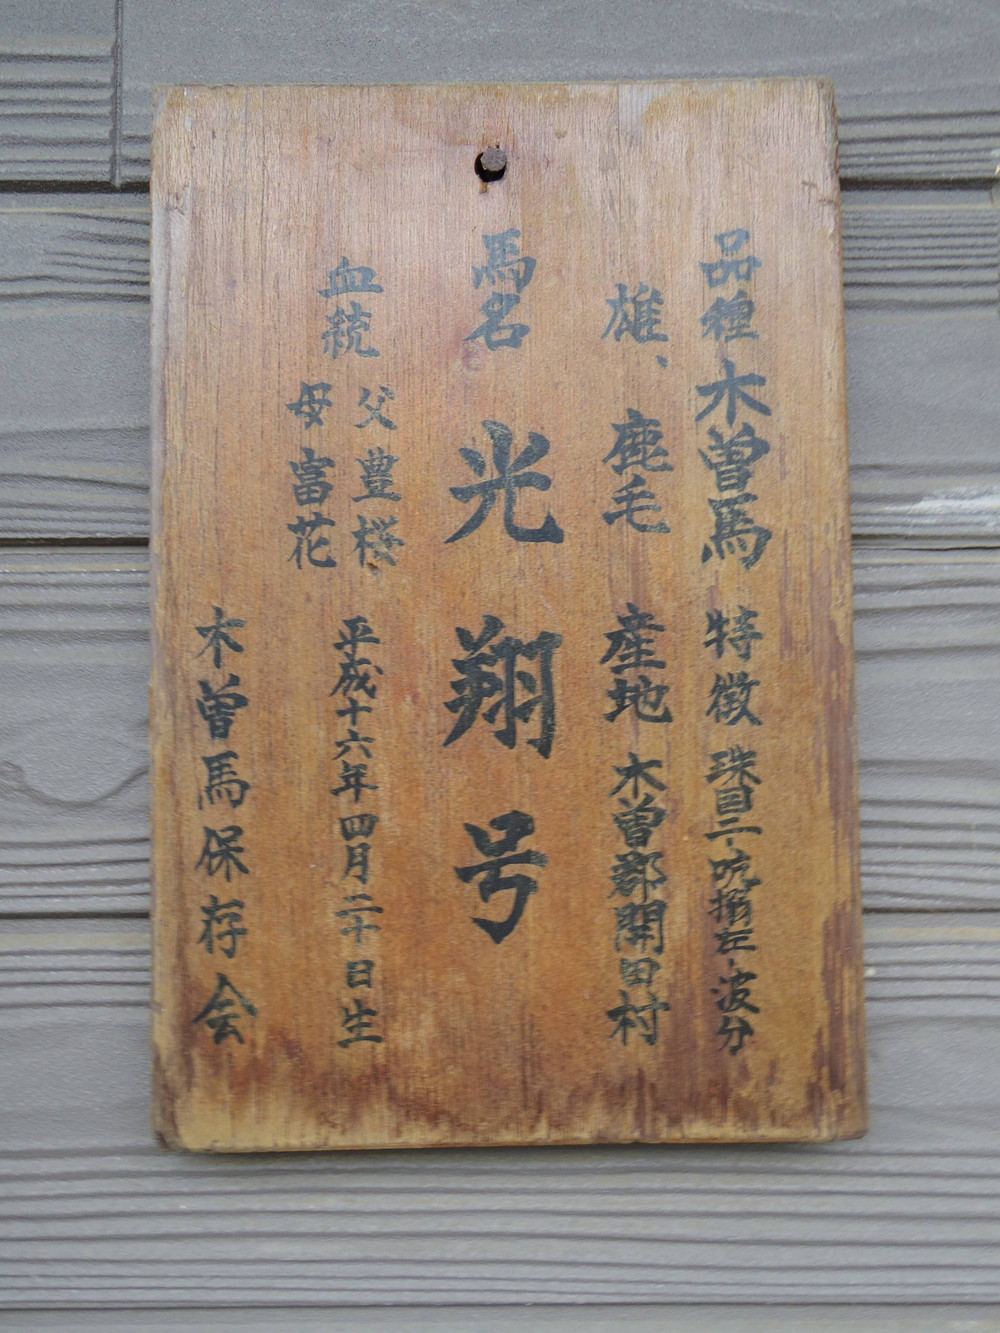 品種 木曽馬 特徴 珠目二、吭搦左、波分
雄、鹿毛 産地 木曽郡開田村
馬名 光翔号
血統 父 豊桜
母 富花
平成十六年四月二十日生
木曽馬保存会